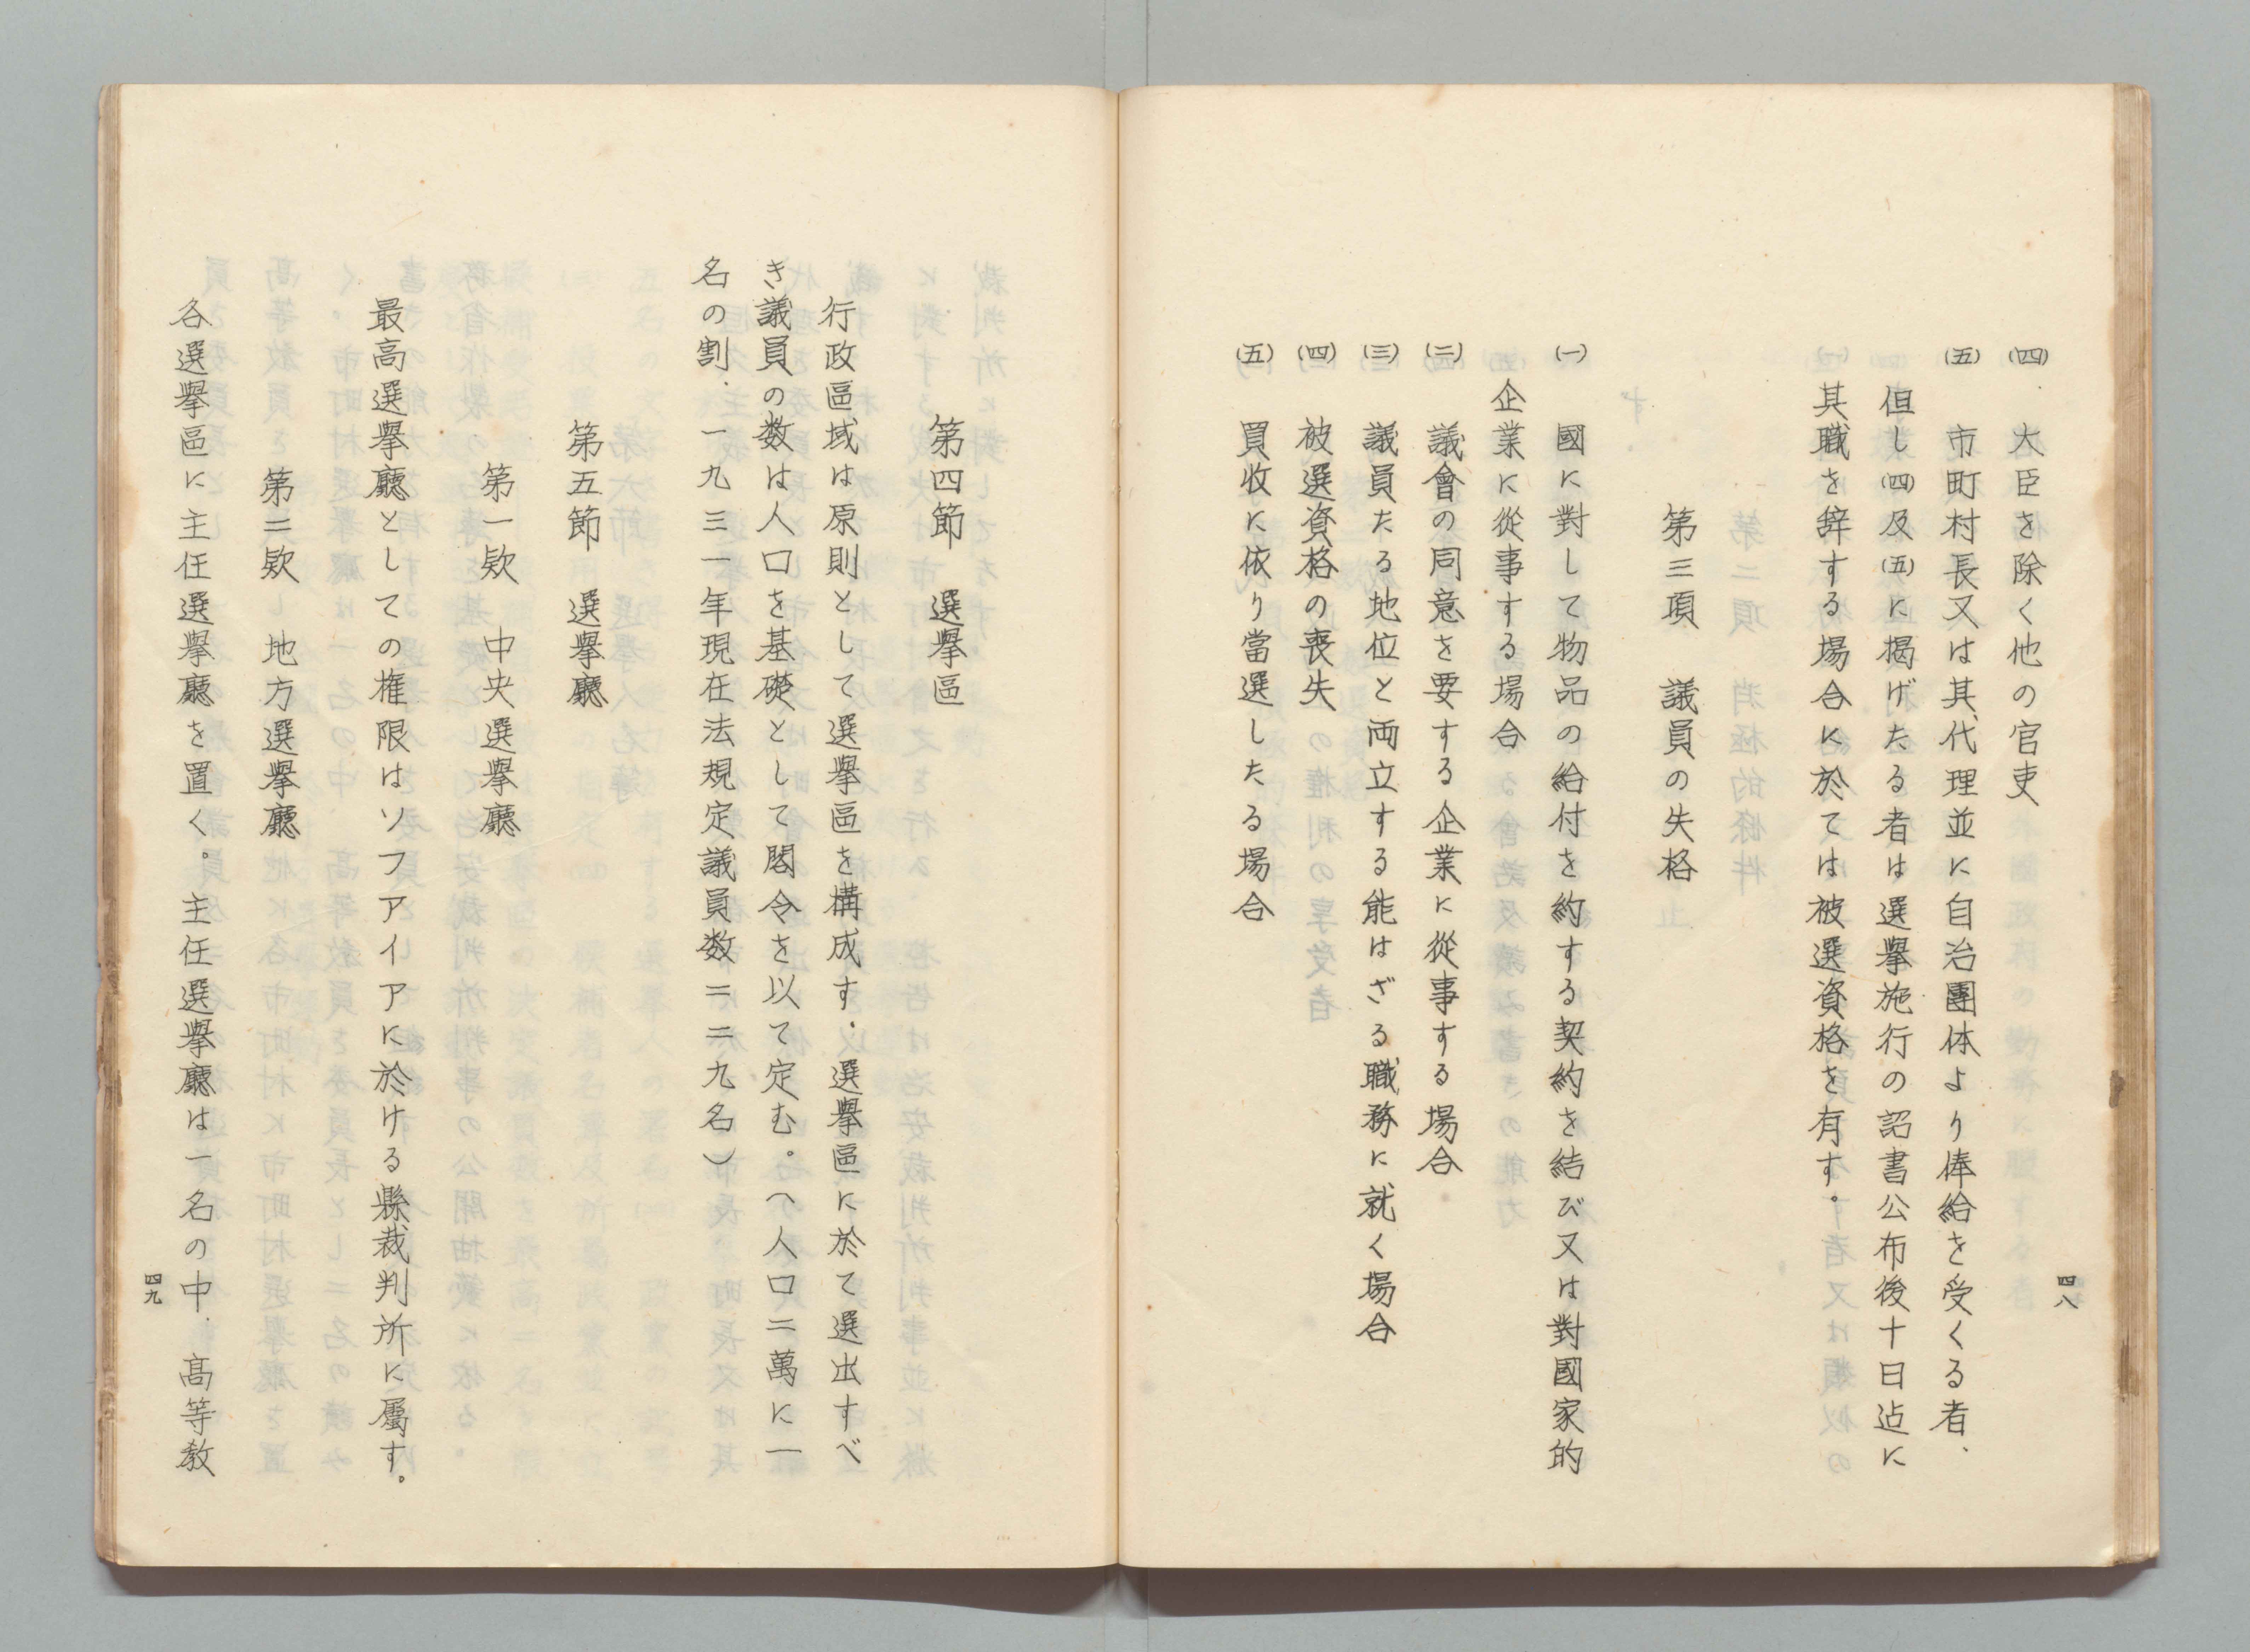 四八
(四) 大臣を除く他の官吏
(五) 市町村長又は其代理並に自治團体より俸給を受くる者、
但し(四)及(五)に揭げたる者は選擧施行の詔書公布後十日迠に
其職を辞する場合に於ては被選資格を有す。
第三項 議員の失格
(一) 國に對して物品の給付を約する契約を結び又は對國家的
企業に從事する場合
(二) 議會の同意を要する企業に從事する場合
(三) 議員たる地位と両立する能はざる職務に就く場合
(四) 被選資格の喪失
(五) 買收に依り當選したる場合
第四節 選擧區
行政區域は原則として選擧區を構成す.選擧區に於て選出すべ
き議員の数は人口を基礎として閣令を以て定む。(人口二萬に一
名の割.一九三一年現在法規定議員数二二九名)
第五節 選擧廳
第一欵 中央選擧廳
最高選擧廳としての権限はソフアイアに於ける縣裁判所に屬す。
第二欵 地方選擧廳
各選擧區に主任選擧廳を置く。主任選擧廳は一名の中.高等教
四九